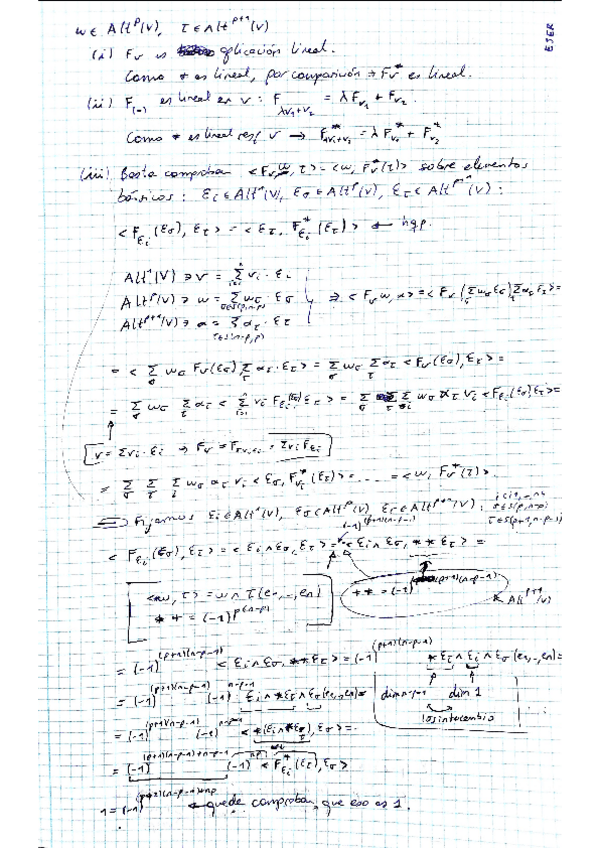 ω ∈ Alt^p(V), τ ∈ Alt^{p+1}(V)
EJER
(i) F_v es aplicación lineal.
Como * es lineal, por comparición → F_v^* es lineal.
(ii) F_(-) es lineal en v: F_{λv_1+v_2} = λF_{v_1} + F_{v_2}.
Como * es lineal resp. v → F^*_{λv_1+v_2} = λF^*_{v_1} + F^*_{v_2}
(iii) Basta comprobar <F_v ω, τ> = <ω, F_v^*(τ)> sobre elementos
básicos: ε_i ∈ Alt^1(V), ε_σ ∈ Alt^p(V), ε_τ ∈ Alt^{p+1}(V):
<F_{ε_i}(ε_σ), ε_τ> = <ε_τ, F^*_{ε_i}(ε_τ)> ← hqp.
Alt^1(V) ∋ v = Σ v_i · ε_i
Alt^p(V) ∋ ω = Σ ω_σ · ε_σ
⇒ <F_v ω, α> = <F_v(Σ ω_σ ε_σ), Σ α_τ ε_τ> =
Alt^{p+1}(V) ∋ α = Σ α_τ · ε_τ
= <Σ_σ ω_σ F_v(ε_σ), Σ_τ α_τ · ε_τ> = Σ_σ ω_σ Σ_τ α_τ <F_v(ε_σ), ε_τ> =
= Σ_σ ω_σ Σ_τ α_τ <Σ v_i F_{ε_i}(ε_σ), ε_τ> = Σ_σ Σ_τ Σ_i ω_σ α_τ v_i <F_{ε_i}(ε_σ), ε_τ> =
v = Σ v_i · ε_i → F_v = F_{Σ v_i ε_i} = Σ v_i F_{ε_i}
= Σ_σ Σ_τ Σ_i ω_σ α_τ v_i <ε_σ, F^*_{v_i}(ε_τ)> = ..... = <ω, F_v^*(τ)>.
Fijamos ε_i ∈ Alt^1(V), ε_σ ∈ Alt^p(V), ε_τ ∈ Alt^{p+1}(V):
(-1)^{(p+1)(n-p-1)}
<F_{ε_i}(ε_σ), ε_τ> = <ε_i ∧ ε_σ, ε_τ> = <ε_i ∧ ε_σ, * * ε_τ> =
<*ω, τ> = ω ∧ τ(e_1, .., e_n)
* * = (-1)^{p(n-p)}
* * = (-1)^{(p+1)(n-p-1)}
Alt^{p+1}(V)
= (-1)^{(p+1)(n-p-1)} <ε_i ∧ ε_σ, * * ε_τ> = (-1)^{(p+1)(n-p-1)} * ε_τ ∧ ε_i ∧ ε_σ (e_1, .., e_n) =
= (-1)^{(p+1)(n-p-1)} (-1)^{n-p-1} ε_i ∧ *ε_τ ∧ ε_σ (e_1, .., e_n) =
dim n-p-1 dim 1
los intercambio
= (-1)^{(p+1)(n-p-1)} (-1)^{n-p-1} <*(ε_i ∧ *ε_τ), ε_σ> =
= (-1)^{(p+1)(n-p-1)+n-p-1} (-1)^{np} <F^*_{ε_i}(ε_τ), ε_σ>
1 = (-1)^{(p+2)(n-p-1)+np} ← quede comprobar, que eso es 1.